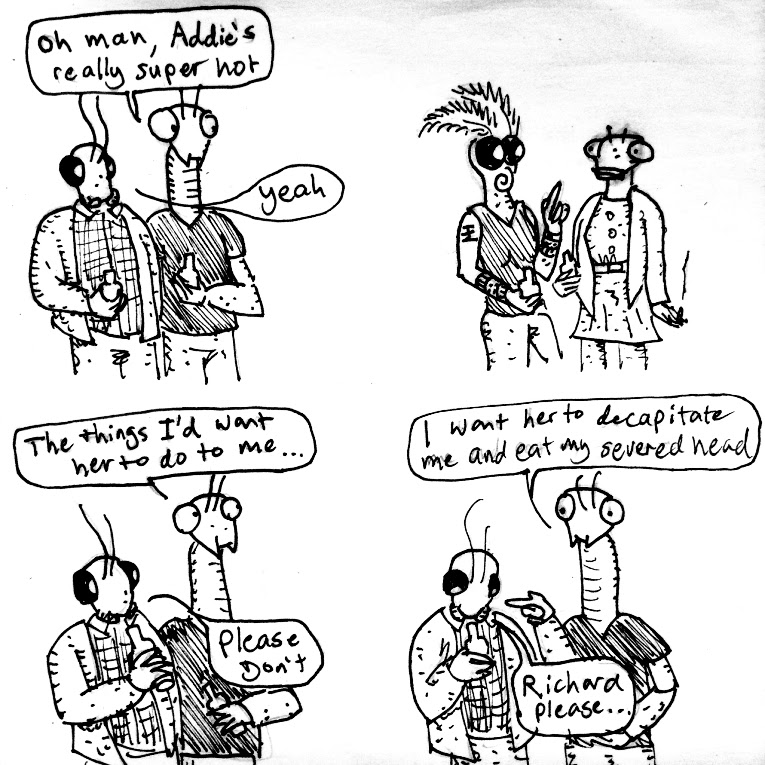 oh man, Addie's
really super hot
yeah
The things I'd want
her to do to me...
Please
Don't
I want her to decapitate
me and eat my severed head
Richard
please...